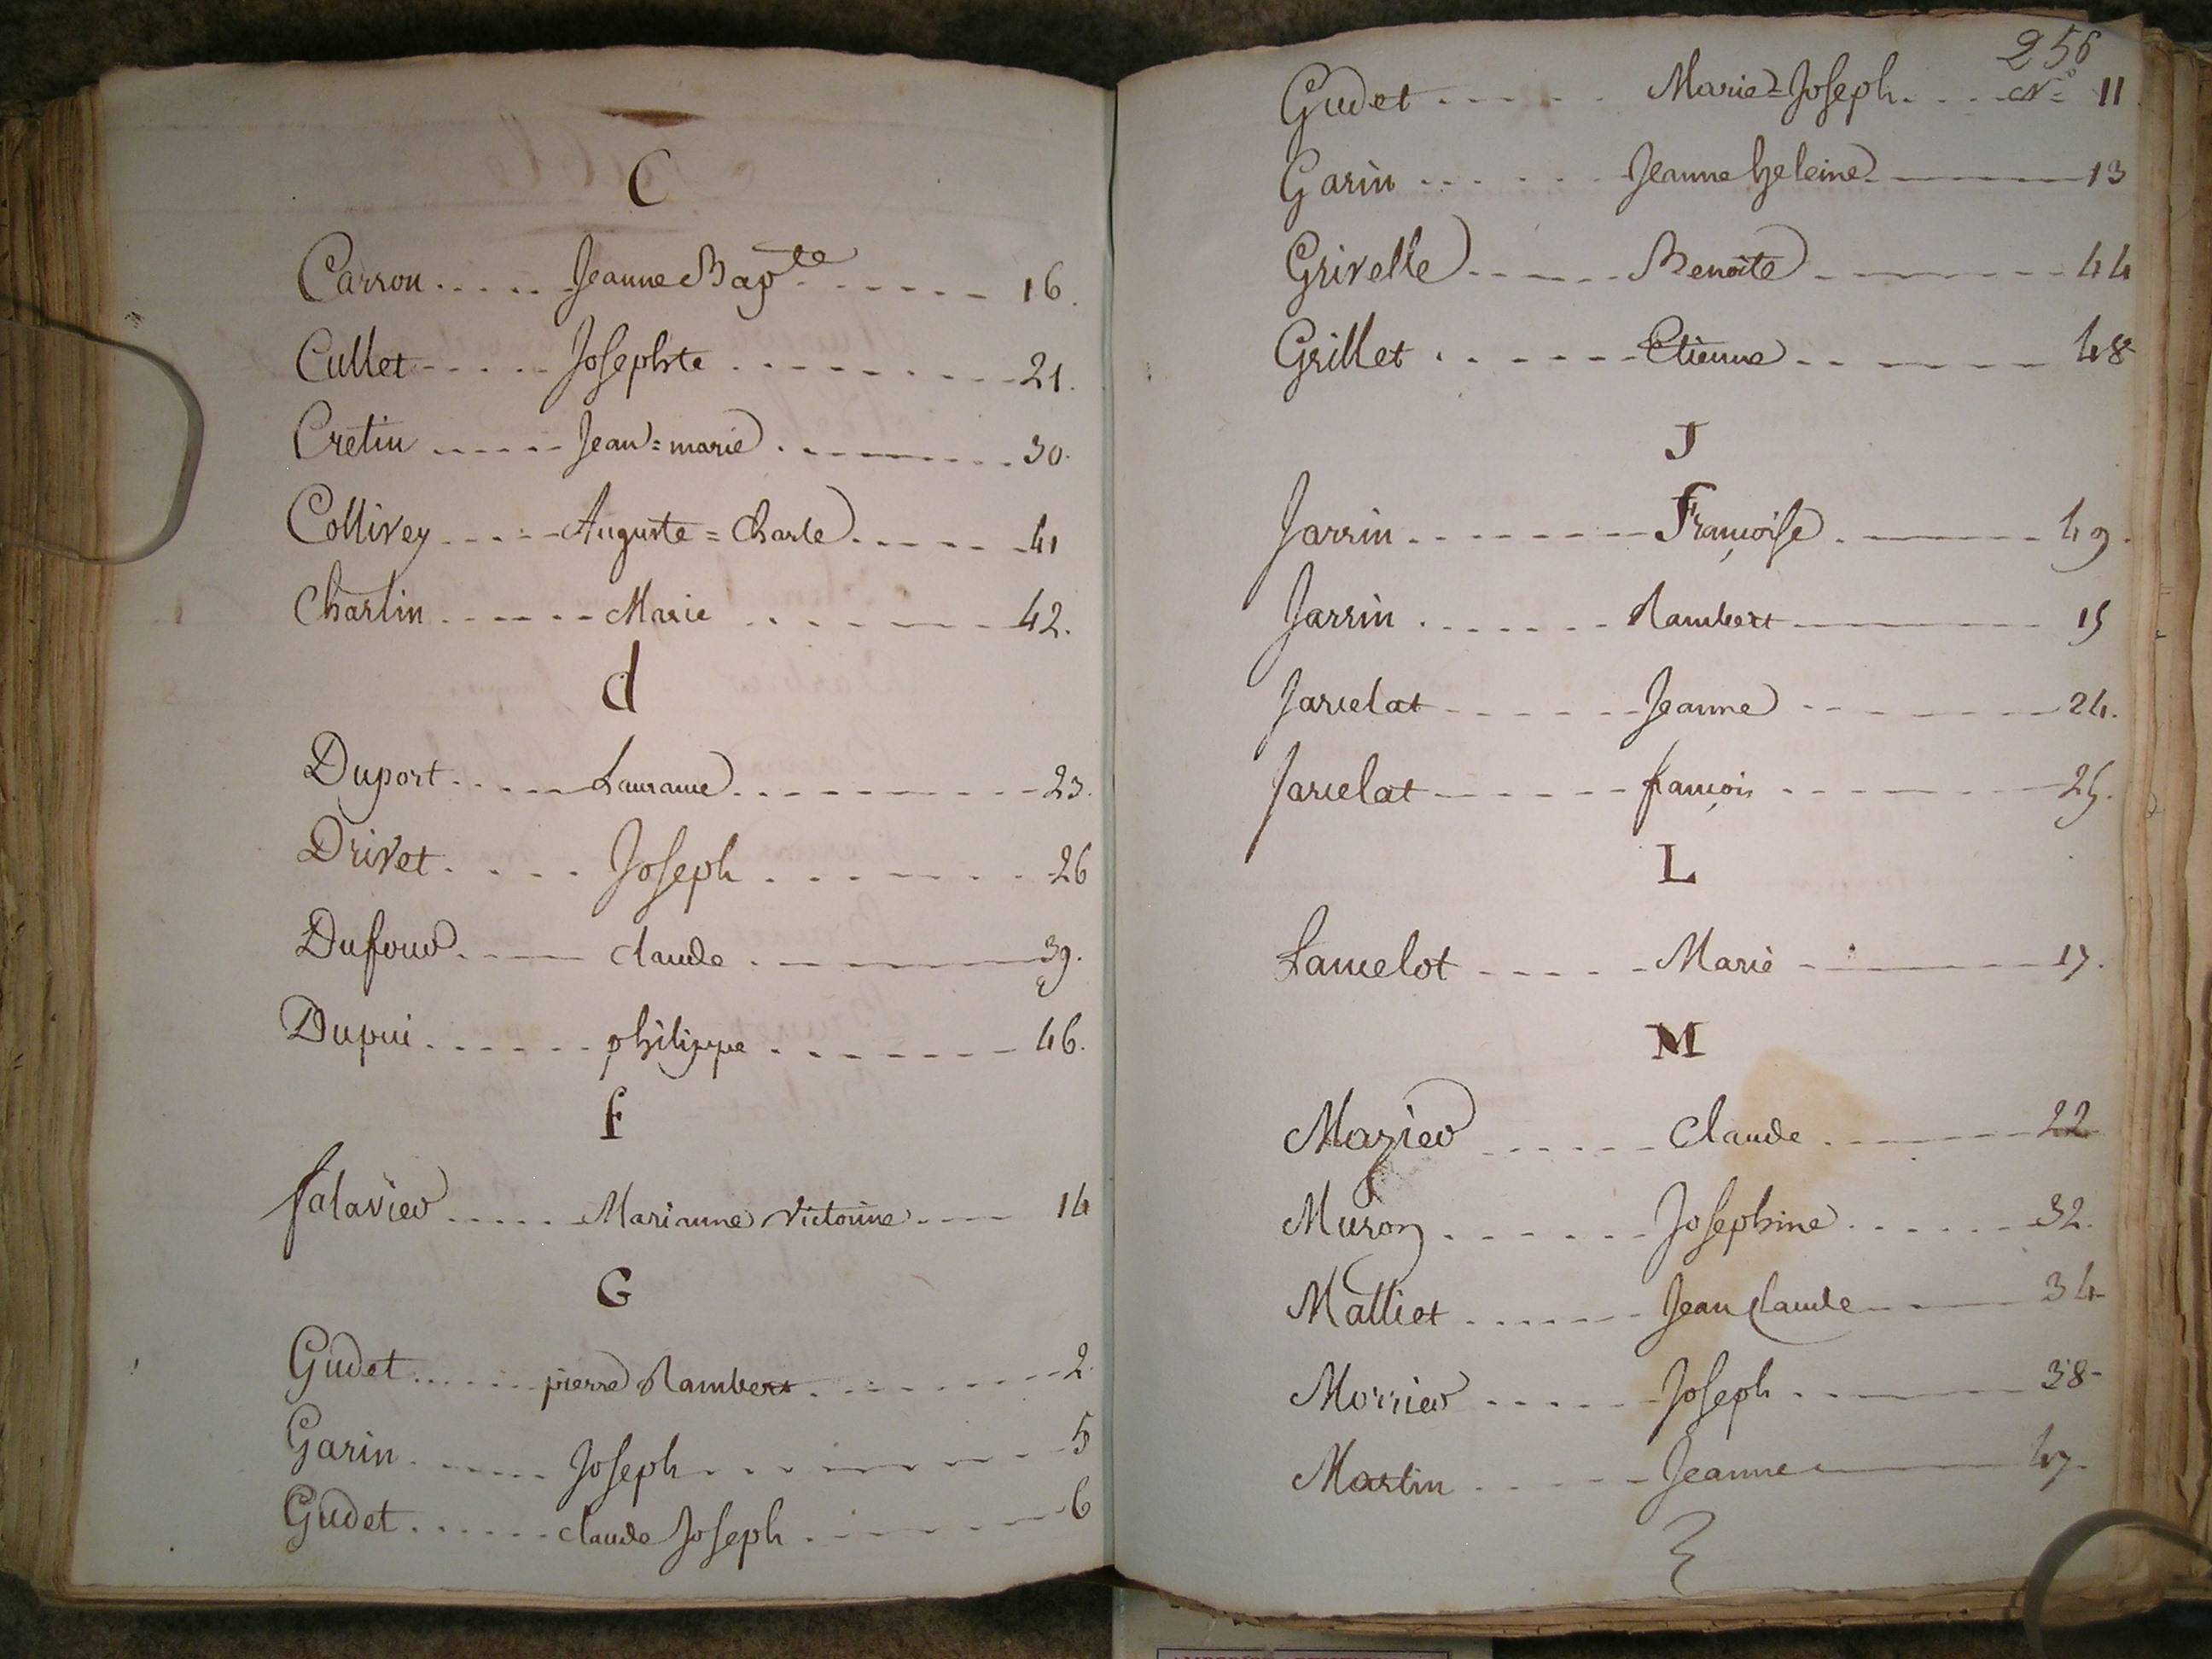 C
Carron ..... Jeanne Bapte ...... 16.
Cullet ..... Josephte ........ 21.
Cretin ..... Jean=marie ........ 30.
Collivey ..... Auguste=Charle ..... 41
Charlin ..... Marie ....... 42.
d
Duport ..... Laurance ......... 23.
Drivet ..... Joseph ....... 26
Dufour ..... claude ..... 39.
Dupui ...... philippe ....... 46.
f
falavier ..... Marianne Victoine .... 14
G
Gudet ..... pierre Rambert ....... 2.
Garin ..... Joseph ........ 5
Gudet ...... claude Joseph ...... 6
256
Gudet ..... Marie=Joseph .... N.º 11
Garin ..... Jeanne heleine ---- 13
Grivelle ..... Benoite ...... 44
Grillet ...... Etienne ...... 48
J
Jarrin ....... Françoise ..... 49.
Jarrin ....... Rambert ---- 15
Jarcelat ..... Jeanne ...... 24.
Jarcelat ..... françois ...... 25.
L
Lancelot ..... Marie ---- 17.
M
Mazier ...... Claude ..... 22
Muron ...... Josephine ...... 32.
Malliet ...... Jean Claude ---- 34
Morrier ..... Joseph ..... 38
Martin ..... Jeanne ---- 47.